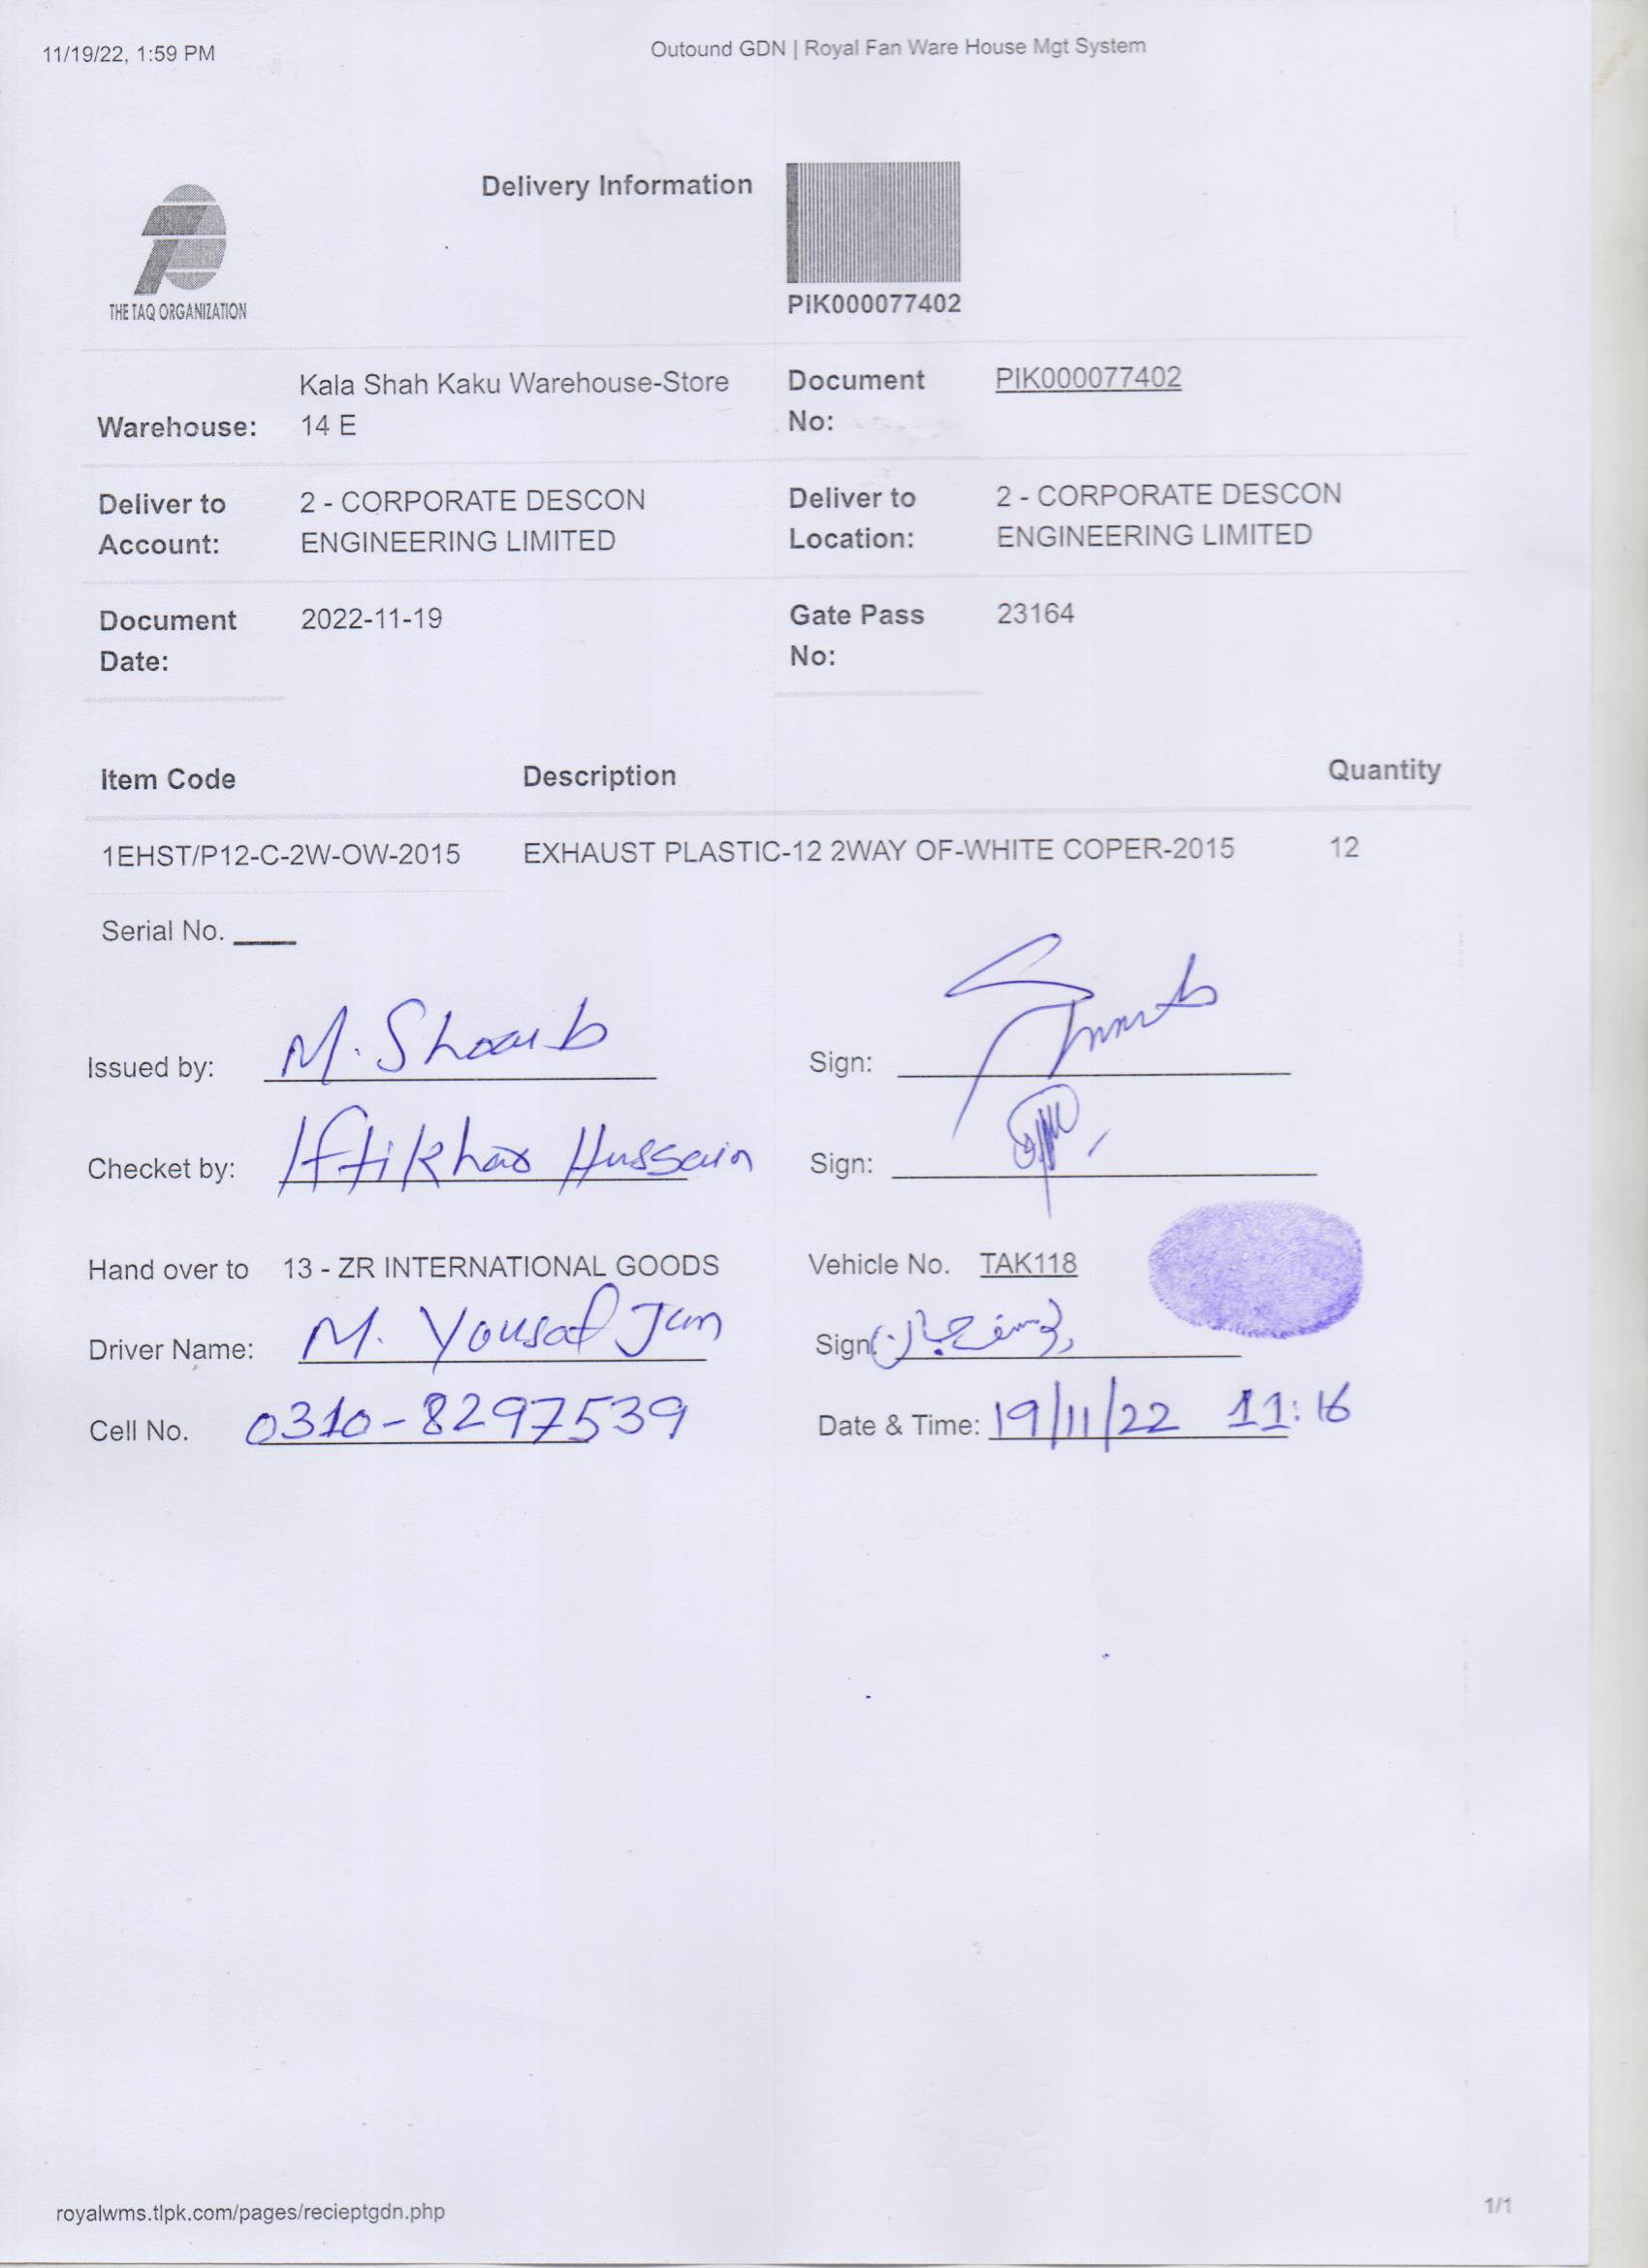 11/19/22, 1:59 PM
Outound GDN | Royal Fan Ware House Mgt System
Delivery Information
THE TAQ ORGANIZATION
PIK000077402
Warehouse: Kala Shah Kaku Warehouse-Store 14 E
Document No: PIK000077402
Deliver to Account: 2 - CORPORATE DESCON ENGINEERING LIMITED
Deliver to Location: 2 - CORPORATE DESCON ENGINEERING LIMITED
Document Date: 2022-11-19
Gate Pass No: 23164
Item Code Description Quantity
1EHST/P12-C-2W-OW-2015 EXHAUST PLASTIC-12 2WAY OF-WHITE COPER-2015 12
Serial No.
Issued by: M. Shoaib Sign:
Checket by: Iftikhar Hussain Sign:
Hand over to 13 - ZR INTERNATIONAL GOODS Vehicle No. TAK118
Driver Name: M. Yousaf Jan Sign: یوسف جان
Cell No. 0310-8297539 Date & Time: 19/11/22 11:16
royalwms.tlpk.com/pages/recieptgdn.php
1/1